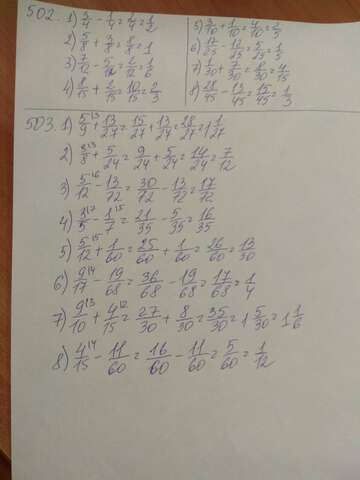 502. 1) 3/4 - 1/4 = 2/4 = 1/2
2) 5/8 + 3/8 = 8/8 = 1
3) 7/12 - 5/12 = 2/12 = 1/6
4) 8/15 + 2/15 = 10/15 = 2/3
5) 3/10 + 1/10 = 4/10 = 2/5
6) 17/25 - 12/25 = 5/25 = 1/5
7) 1/30 + 7/30 = 8/30 = 4/15
8) 28/45 - 13/45 = 15/45 = 1/3
503. 1) 5/9 + 13/27 = 15/27 + 13/27 = 28/27 = 1 1/27
2) 3/8 + 5/24 = 9/24 + 5/24 = 14/24 = 7/12
3) 5/12 - 13/72 = 30/72 - 13/72 = 17/72
4) 3/5 - 1/7 = 21/35 - 5/35 = 16/35
5) 5/12 + 1/60 = 25/60 + 1/60 = 26/60 = 13/30
6) 9/17 - 19/68 = 36/68 - 19/68 = 17/68 = 1/4
7) 9/10 + 4/15 = 27/30 + 8/30 = 35/30 = 1 5/30 = 1 1/6
8) 4/15 - 11/60 = 16/60 - 11/60 = 5/60 = 1/12